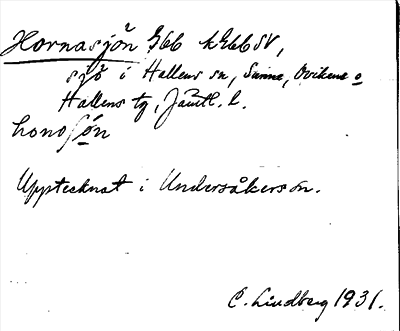 Hornasjön G66 kG66SV,
sjö i Hallens sn, Sunne, Ovikens o
Hallens tg, Jämtl. l.
honosjón
Upptecknat i Undersåkers sn.
C. Lindberg 1931.